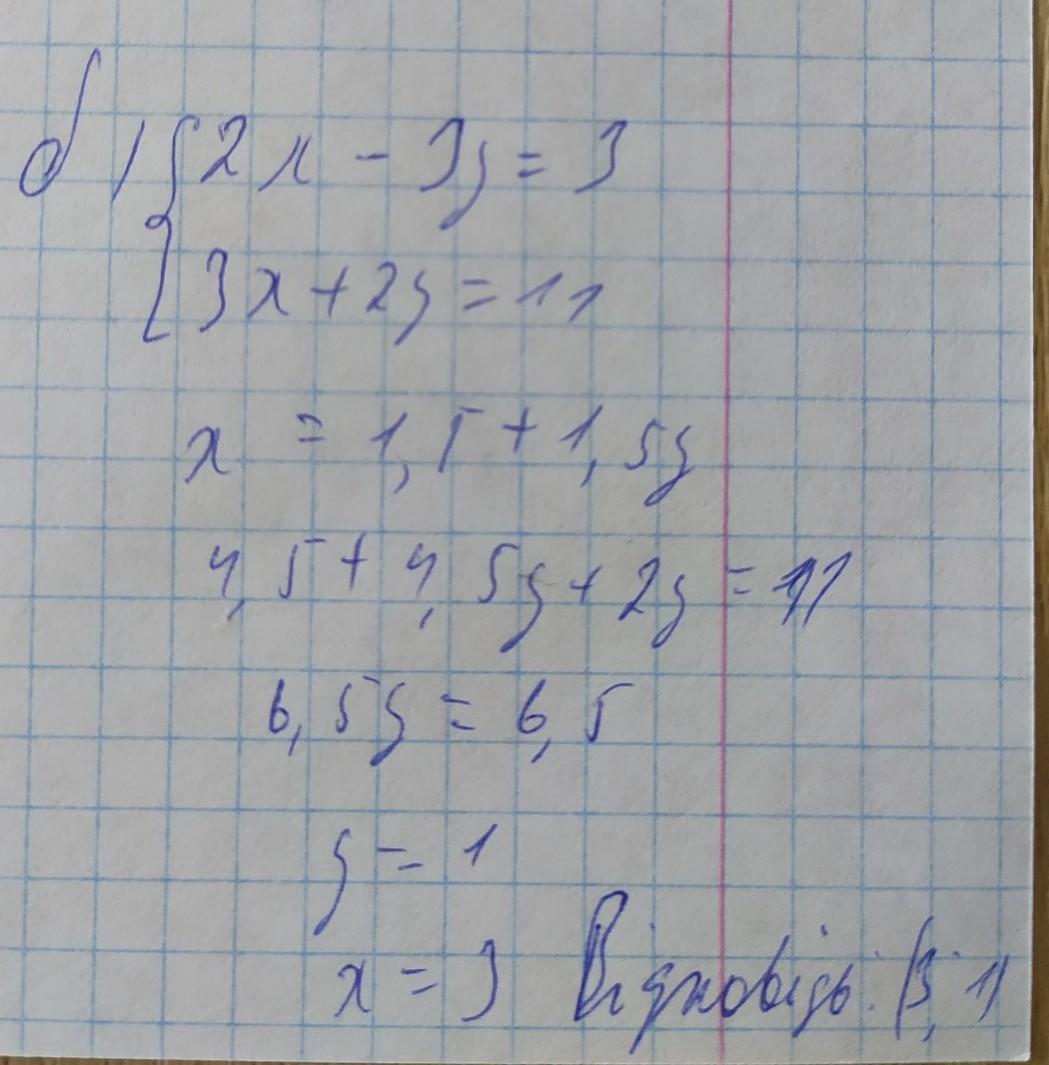 б) { 2x - 3y = 3
3x + 2y = 11
x = 1,5 + 1,5y
4,5 + 4,5y + 2y = 11
6,5y = 6,5
y = 1
x = 3 Відповідь: (3; 1)